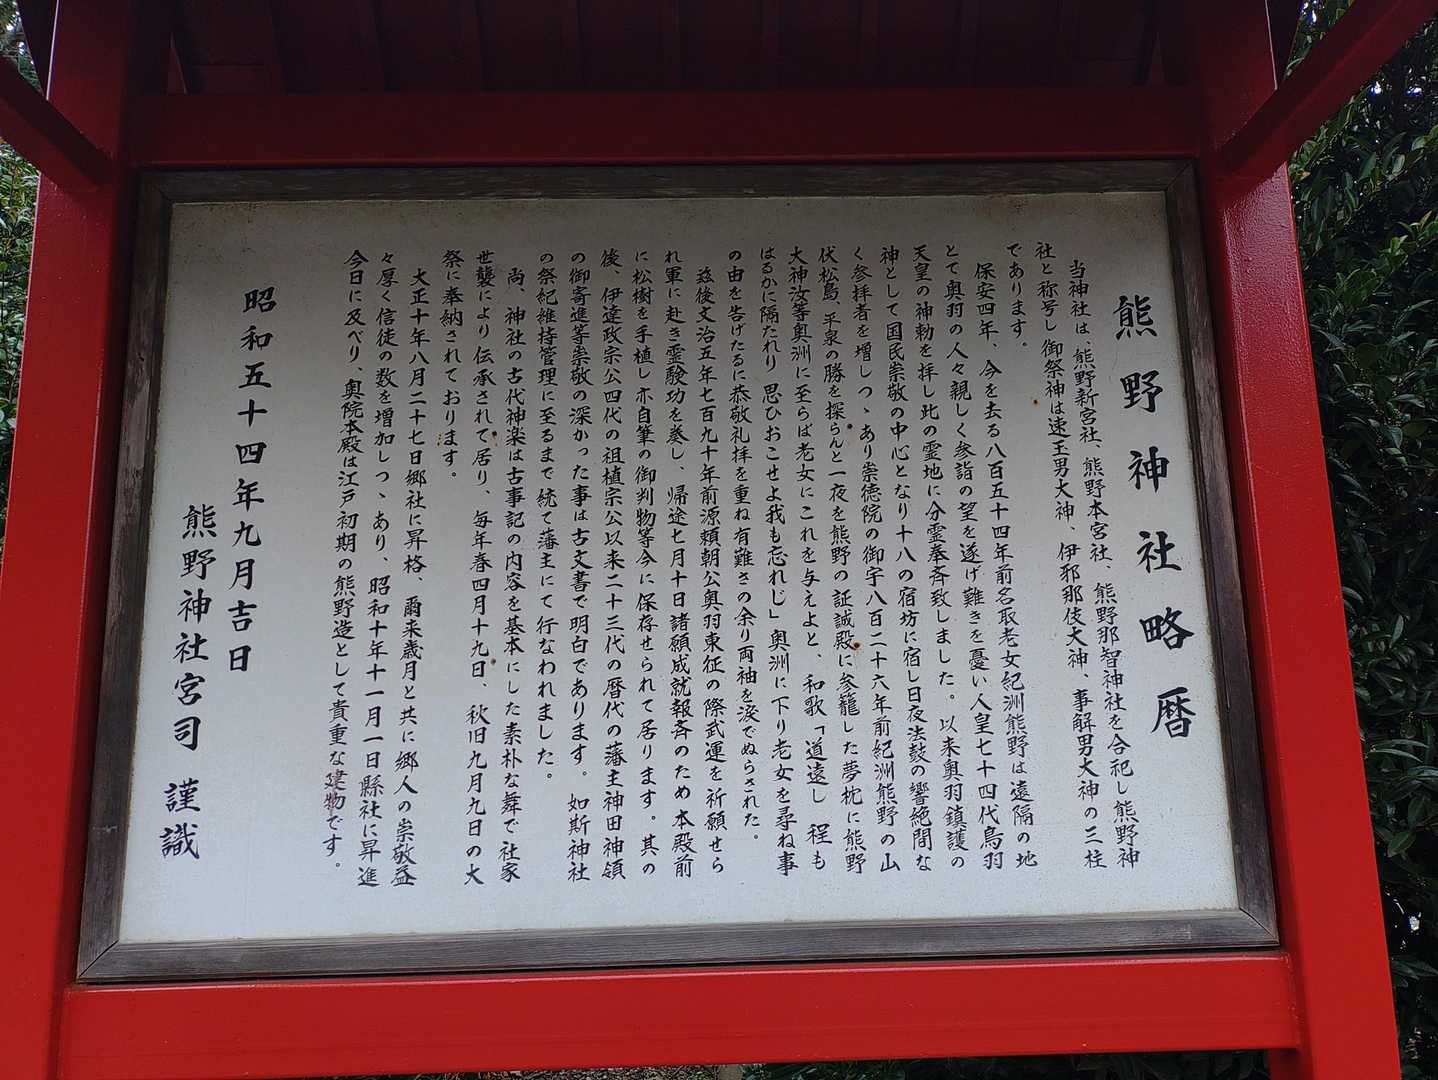 熊野神社略暦
当神社は、熊野新宮社、熊野本宮社、熊野那智神社を合祀し熊野神
社と称号し御祭神は速玉男大神、伊邪那伎大神、事解男大神の三柱
であります。
保安四年、今を去る八百五十四年前名取老女紀洲熊野は遠隔の地
とて奥羽の人々親しく参詣の望を遂げ難きを憂い人皇七十四代鳥羽
天皇の神勅を拝し此の霊地に分霊奉斉致しました。以来奥羽鎮護の
神として国民崇敬の中心となり十八の宿坊に宿し日夜法鼓の響絶間な
く参拝者を増しつゝあり崇徳院の御宇八百二十六年前紀洲熊野の山
伏松島、平泉の勝を探らんと一夜を熊野の証誠殿に参籠した夢枕に熊野
大神汝等奥洲に至らば老女にこれを与えよと、和歌「道遠し 程も
はるかに隔たれり 思ひおこせよ我も忘れじ」奥洲に下り老女を尋ね事
の由を告げたるに恭敬礼拝を重ね有難さの余り両袖を涙でぬらされた。
茲後文治五年七百九十年前源頼朝公奥羽東征の際武運を祈願せら
れ軍に赴き霊験功を奏し、帰途七月十日諸願成就報斉のため本殿前
に松樹を手植し亦自筆の御判物等今に保存せられて居ります。其の
後、伊達政宗公四代の祖植宗公以来二十三代の暦代の藩主神田神領
の御寄進等崇敬の深かった事は古文書で明白であります。如斯神社
の祭紀維持管理に至るまで統て藩主にて行なわれました。
尚、神社の古代神楽は古事記の内容を基本にした素朴な舞で社家
世襲により伝承されて居り、毎年春四月十九日、秋旧九月九日の大
祭に奉納されております。
大正十年八月二十七日郷社に昇格、爾来歳月と共に郷人の崇敬益
々厚く信徒の数を増加しつゝあり、昭和十年十一月一日縣社に昇進
今日に及べり、奥院本殿は江戸初期の熊野造として貴重な建物です。
昭和五十四年九月吉日
熊野神社宮司 謹識